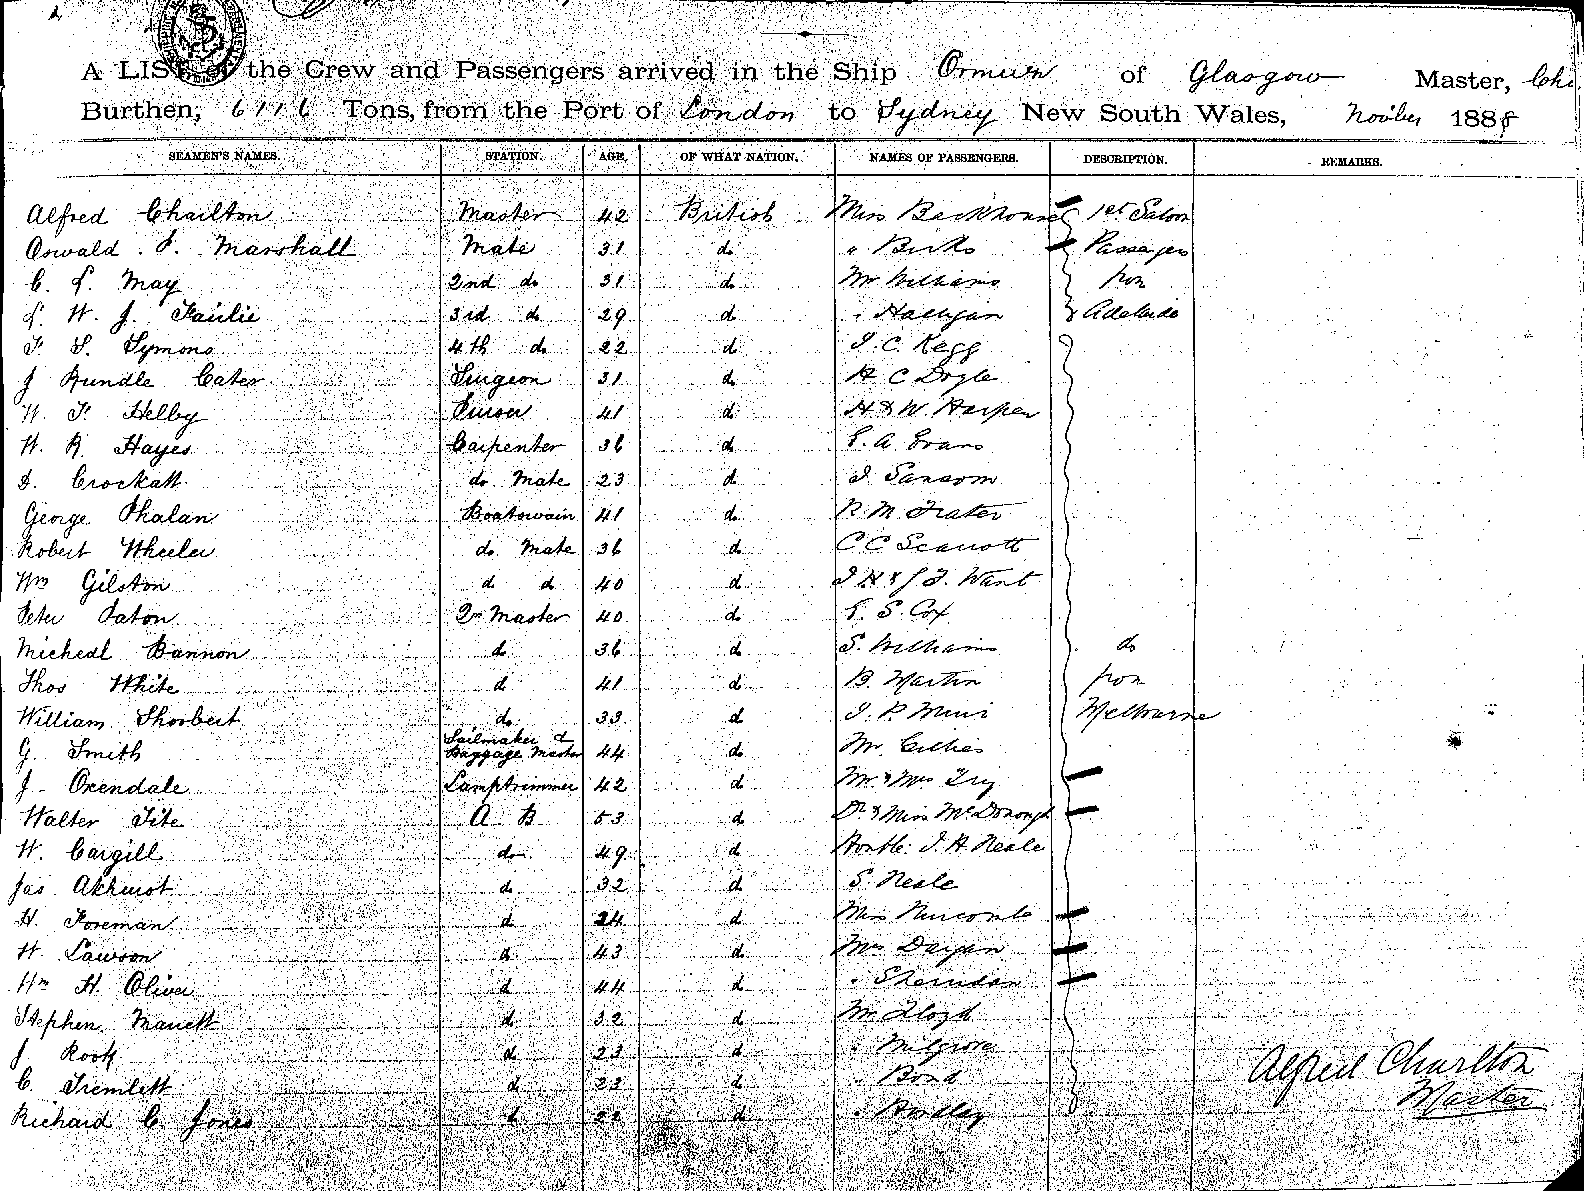 A LIST of the Crew and Passengers arrived in the Ship Ormuz of Glasgow Master,
Burthen, 6116 Tons, from the Port of London to Sydney New South Wales, Novber 1888
SEAMEN'S NAMES. STATION. AGE. OF WHAT NATION. NAMES OF PASSENGERS. DESCRIPTION. REMARKS.
Alfred Charlton Master 42 British Miss Backhouse 1st Saloon
Oswald P. Marshall Mate 31 d " Birks Passengers
C. L. May 2nd do 31 d Mr Williams from
L. W. J. Fairlie 3rd do 29 d " Halligan Adelaide
F S. Symons 4th do 22 d J. C. Kegg
J Rundle Cater Surgeon 31 d H C Dogle
W. F. Helby Purser 41 d H & W. Harper
W. R. Hayes Carpenter 36 d E. A Evans
D. Crockatt do Mate 23 d J Sansom
George Phalan Boatswain 41 d R. M. Frater
Robert Wheeler do Mate 36 d C C Scarrott
Wm Gilston d d 40 d J H & J. F. Want
Peter Paton Qr Master 40 d E. S. Cox
Micheal Bannon do 36 d S. Williams do
Thos White d 41 d B. Martin from
William Shorbert do 33 d J. P. Muir Melbourne
G. Smith Sailmaker & Baggage Master 44 d Mr. Gillies
J. Oxendale Lamptrimmer 42 d Mr & Mrs Try
Walter Tite A B 53 d Dr & Miss McDonough
W. Cargill do 49 d Honble. J. H. Neale
Jas Akhurst d 32 d S. Neale
H. Foreman d 24 d Miss
W. Lawson d 43 d Mrs Dargan
Wm H. Oliver d 44 d " Sherridan
Stephen Manett d 32 d Mr Lloyd
J Rook d 23 d " Milgrove
C. Tremlett d 23 d " Bond
Richard C. Jones d 22 d " Hordley
Alfred Charlton
Master